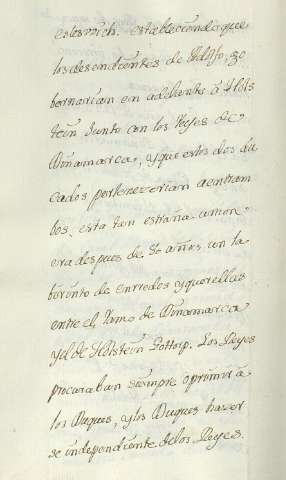 estesvich. estableciendo que
los desendientes de Adolfo, go
bernarian en adelante á Hols
tein Junto con los Reyes de
Dinamarca, y que estos dos du
cados pertenecerian a entram
bos. esta tan estraña union
era despues de 50 años un la
borinto de enrredos y querellas
entre el Ramo de Dinamarca
y el de Holstein Gottorp. Los Reyes
procuraban siempre oprimir á
los Duques, y los Duques hazer
se independiente de los Reyes.